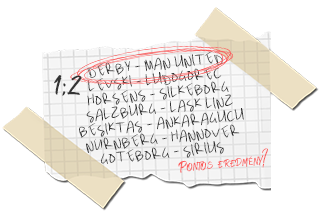 1;2
DERBY - MAN UNITED
LEVSKI - LUDOGOREC
HORSENS - SILKEBORG
SALZBURG - LASKLINZ
BESIKTAS - ANKARAGUCU
NURNBERG - HANNOVER
GOTEBORG - SIRIUS
PONTOS EREDMENY?